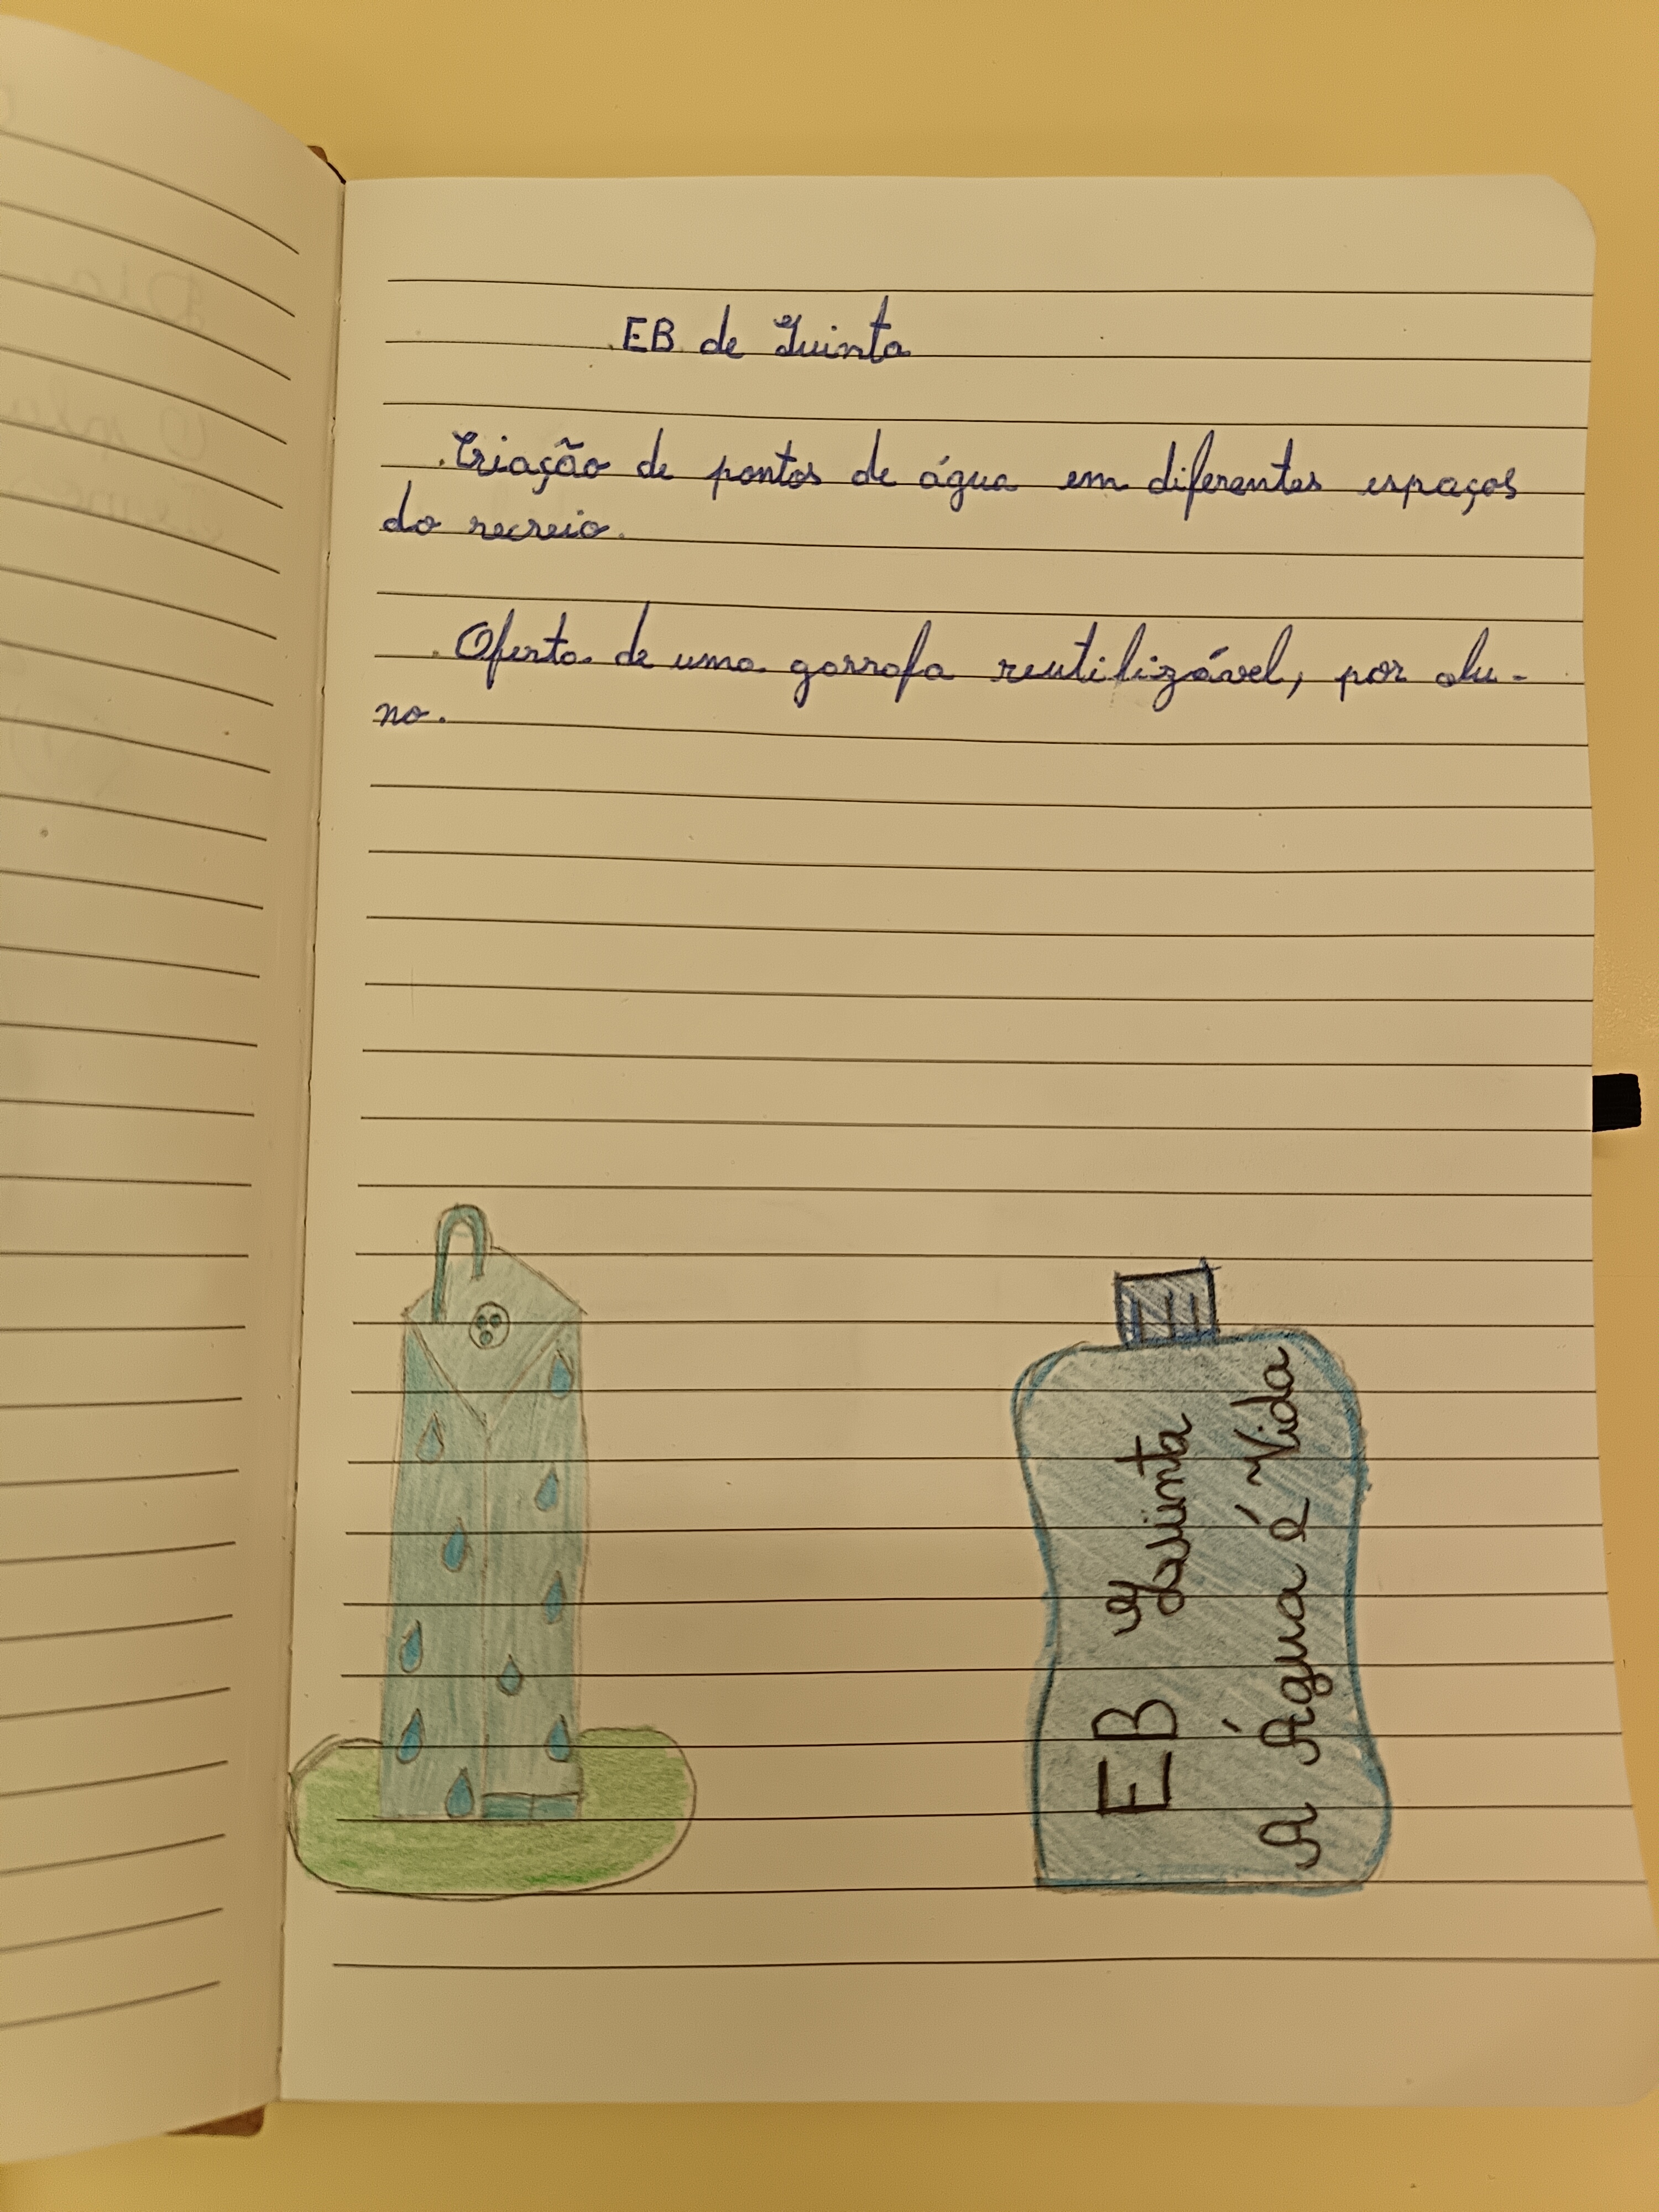 EB de Quinta
. Criação de pontos de água em diferentes espaços
do recreio.
. Oferta de uma garrafa reutilizável, por alu-
no.
EB Quinta
A Água é Vida